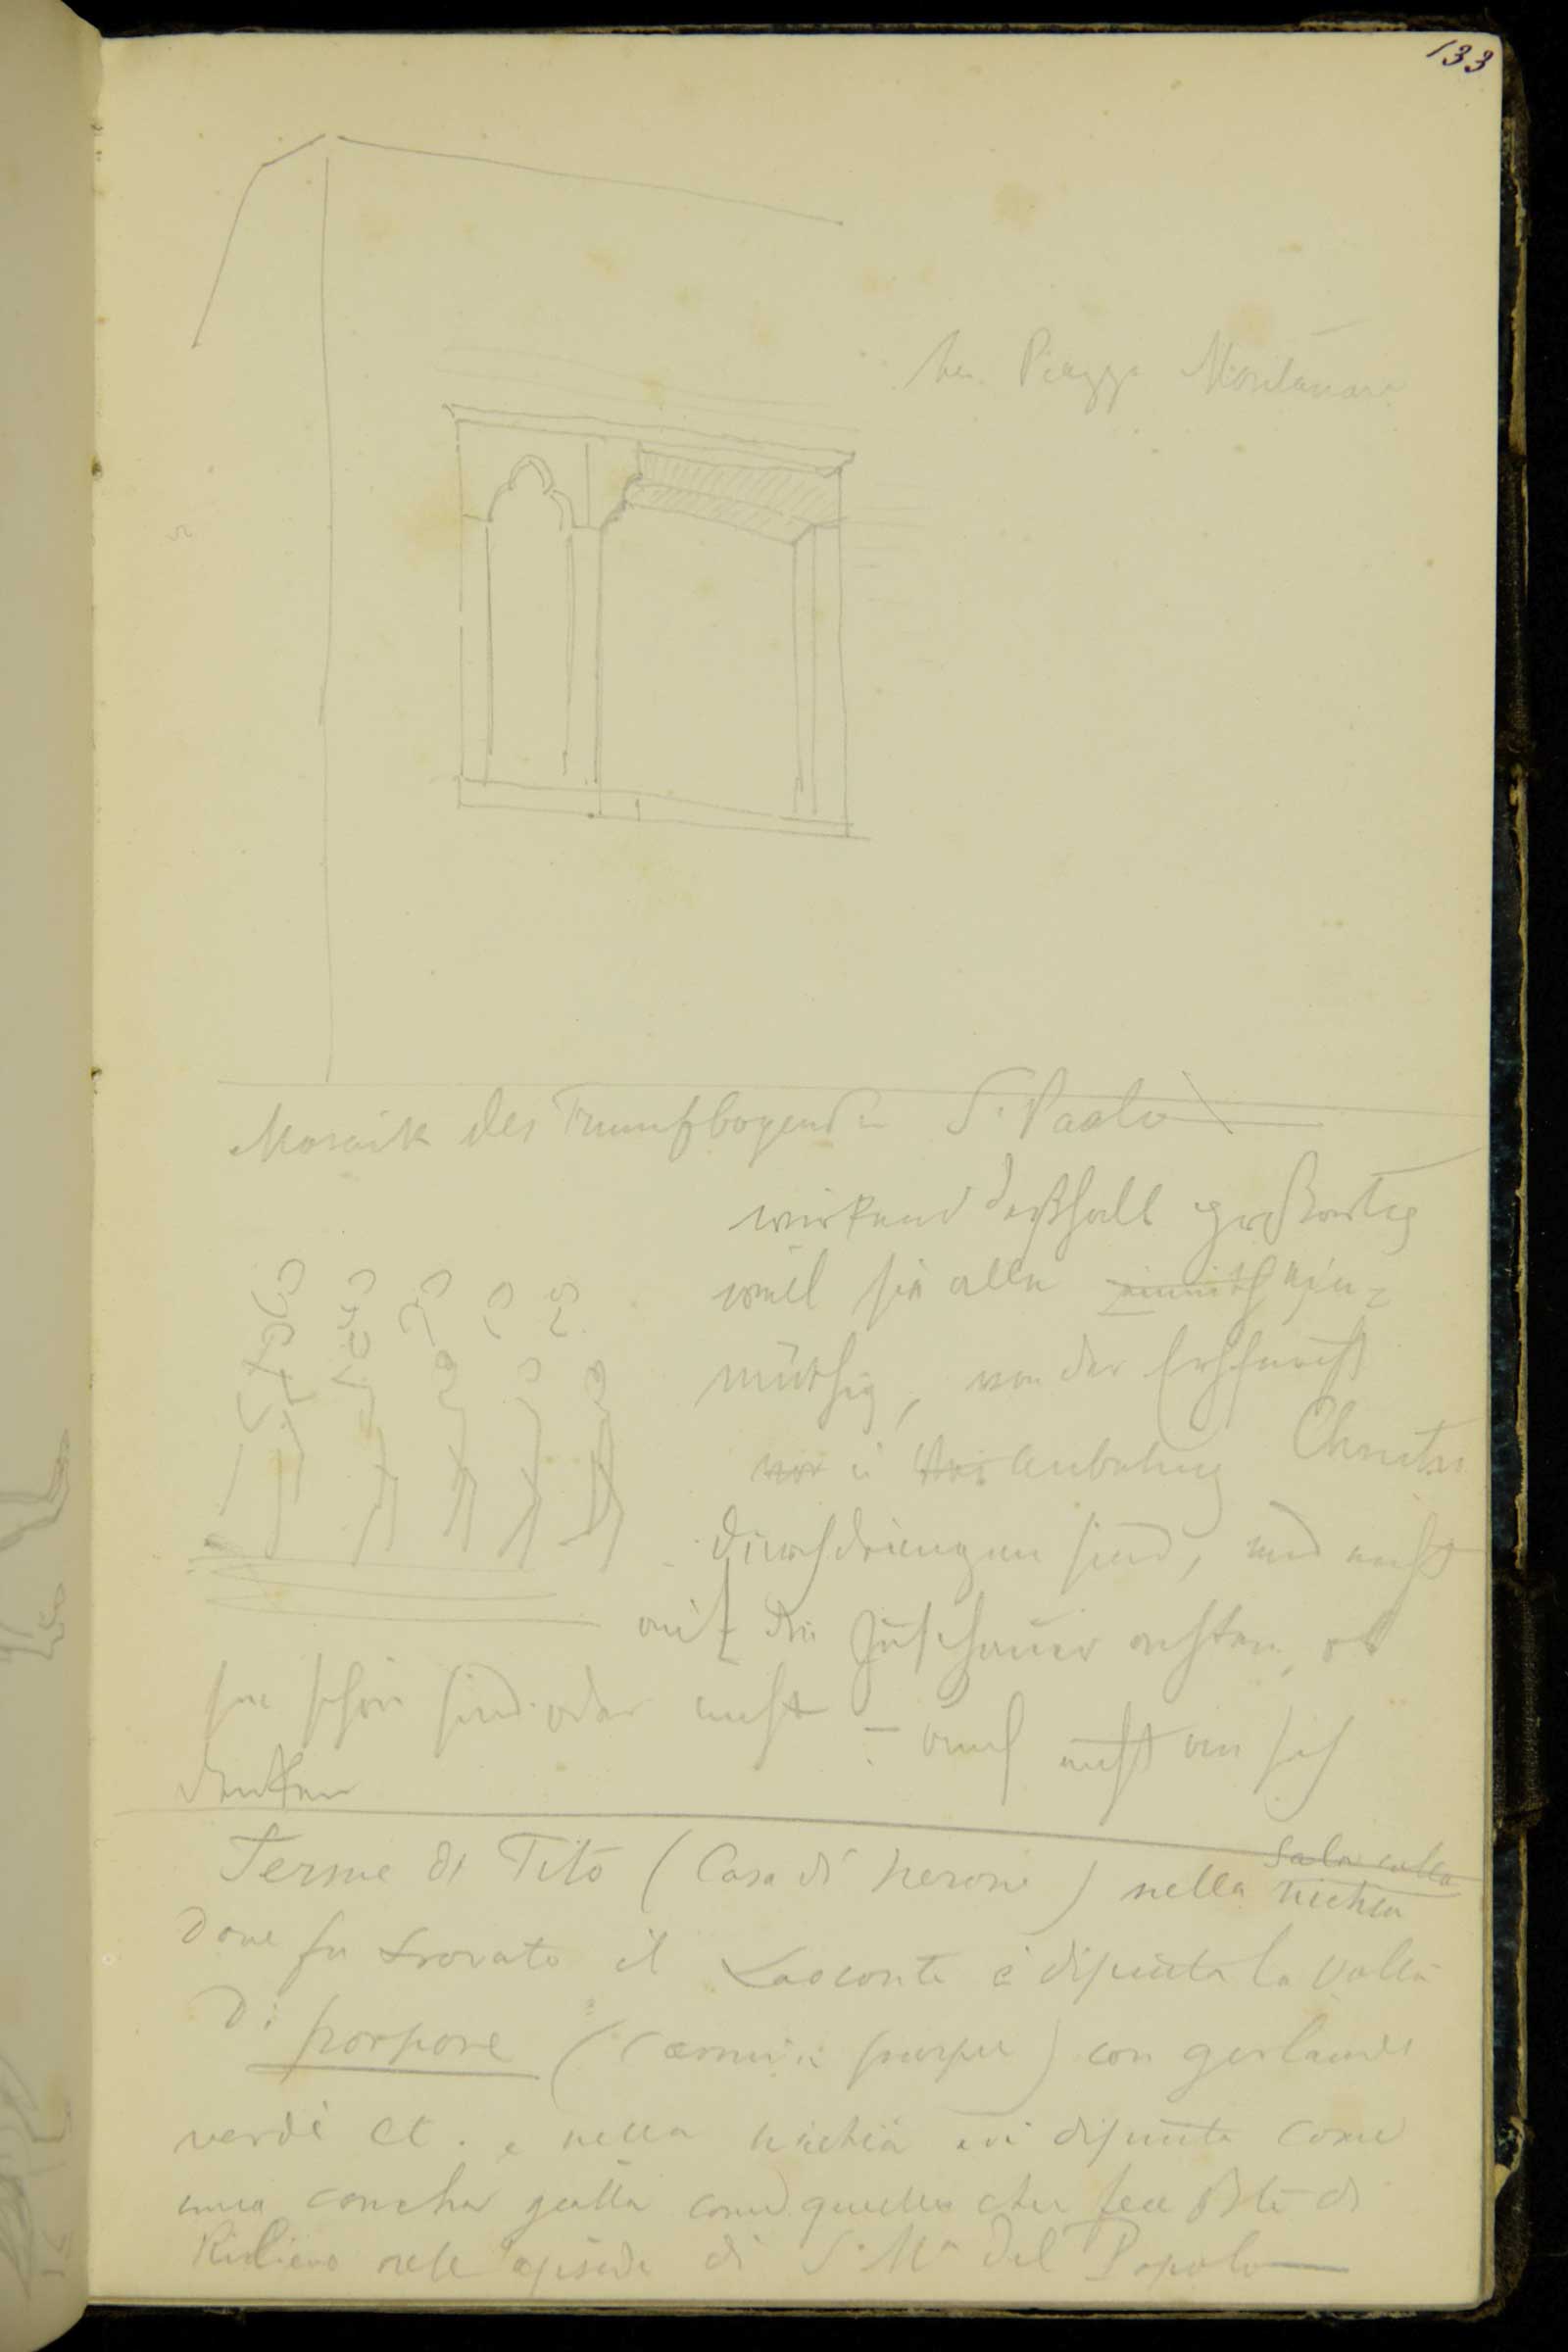 133
Piazza Montanara
Mosaik des Triumfbogens in S. Paolo
wirkend deßhalb großartig
weil sie alle einmüth ein=
müthig, von der Ehrfurcht
vor u Anbetung Christus
durchdrungen sind, und nicht
auf die Zuschauer achten, ob
sie schön sind oder nicht – auch nicht an sich
denken
Terme di Tito (Casa di Nerone) nella Sala colla nichia
dove fu trovato il Laoconte è dipinta la volta
di porpore ( ) con gerlande
verdi et. e nella nichia dipinta come
una concha gialla come quella che fece di
Rilievo nell apside di S. Ma del Popolo